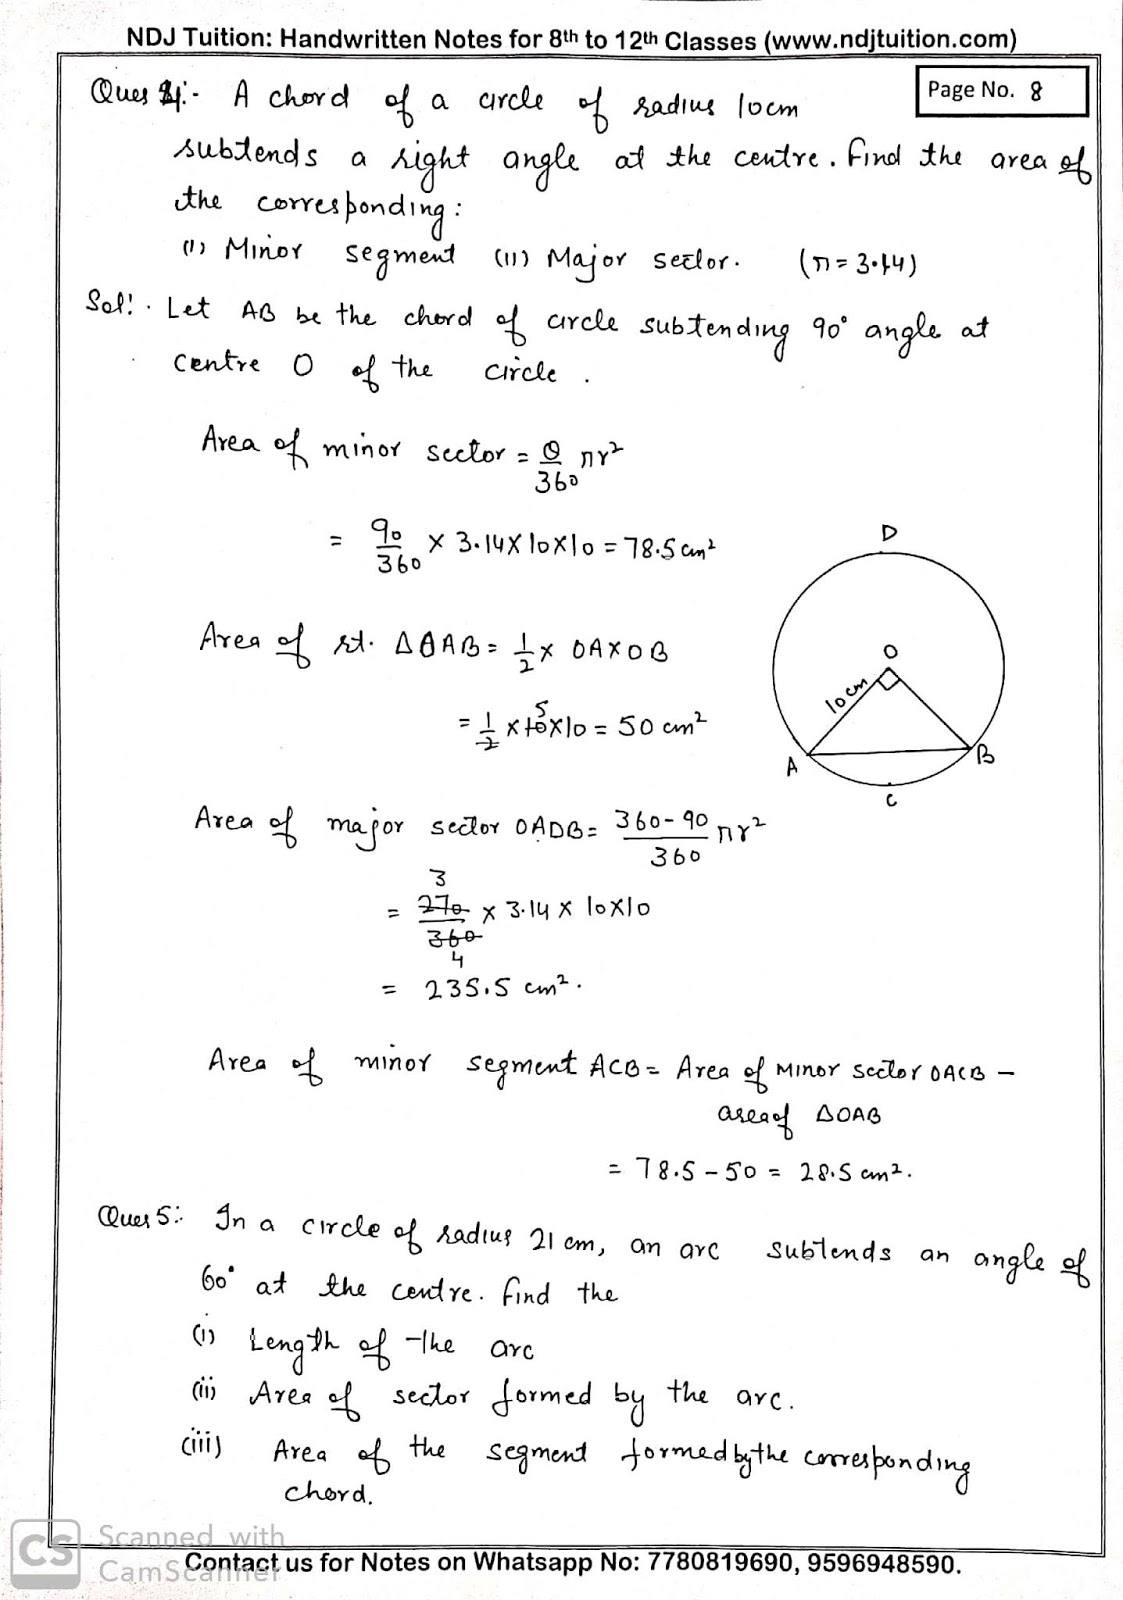 NDJ Tuition: Handwritten Notes for 8th to 12th Classes (www.ndjtuition.com)
Page No. 8
Ques 4:- A chord of a circle of radius 10cm
subtends a right angle at the centre. Find the area of
the corresponding:
(i) Minor segment (ii) Major sector. (π = 3.14)
Sol: Let AB be the chord of circle subtending 90° angle at
centre O of the circle.
Area of minor sector = θ/360 πr²
= 90/360 × 3.14 × 10×10 = 78.5 cm²
D
Area of rt. ΔOAB = 1/2 × OA×OB
O
10cm
= 1/2 × 10×10 = 50 cm²
5
A
B
C
Area of major sector OADB = 360-90/360 πr²
3
= 270/360 × 3.14 × 10×10
4
= 235.5 cm².
Area of minor segment ACB = Area of Minor sector OACB –
area of ΔOAB
= 78.5 – 50 = 28.5 cm².
Ques 5: In a circle of radius 21 cm, an arc subtends an angle of
60° at the centre. Find the
(i) Length of the arc
(ii) Area of sector formed by the arc.
(iii) Area of the segment formed by the corresponding
chord.
CS Scanned with
CamScanner
Contact us for Notes on Whatsapp No: 7780819690, 9596948590.